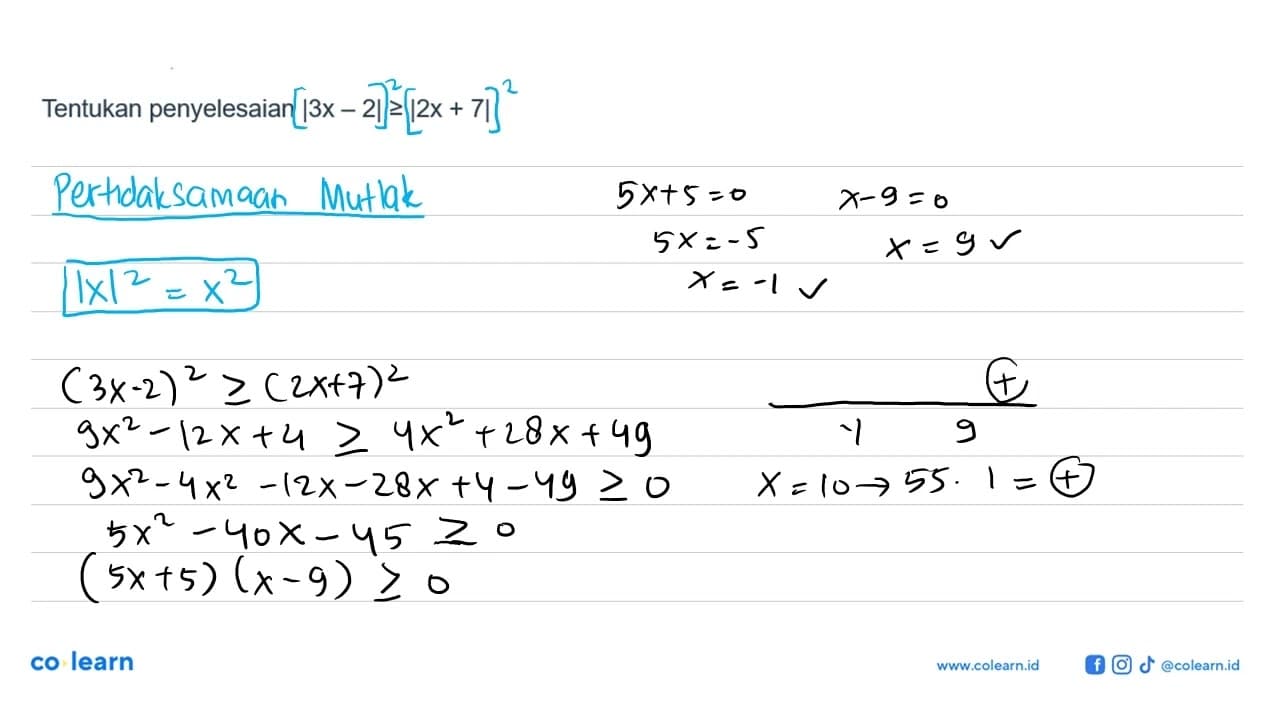 Tentukan penyelesaian [|3x – 2|]² ≥ [|2x + 7|]²
Pertidaksamaan Mutlak
|x|² = x²
5x+5=0
5x=-5
x=-1 ✓
x-9=0
x=9 ✓
(3x-2)² ≥ (2x+7)²
9x²-12x+4 ≥ 4x²+28x+49
9x²-4x²-12x-28x+4-49 ≥ 0
5x²-40x-45 ≥ 0
(5x+5)(x-9) ≥ 0
+
-1 9
x=10→55.1=+
co learn
www.colearn.id
@colearn.id